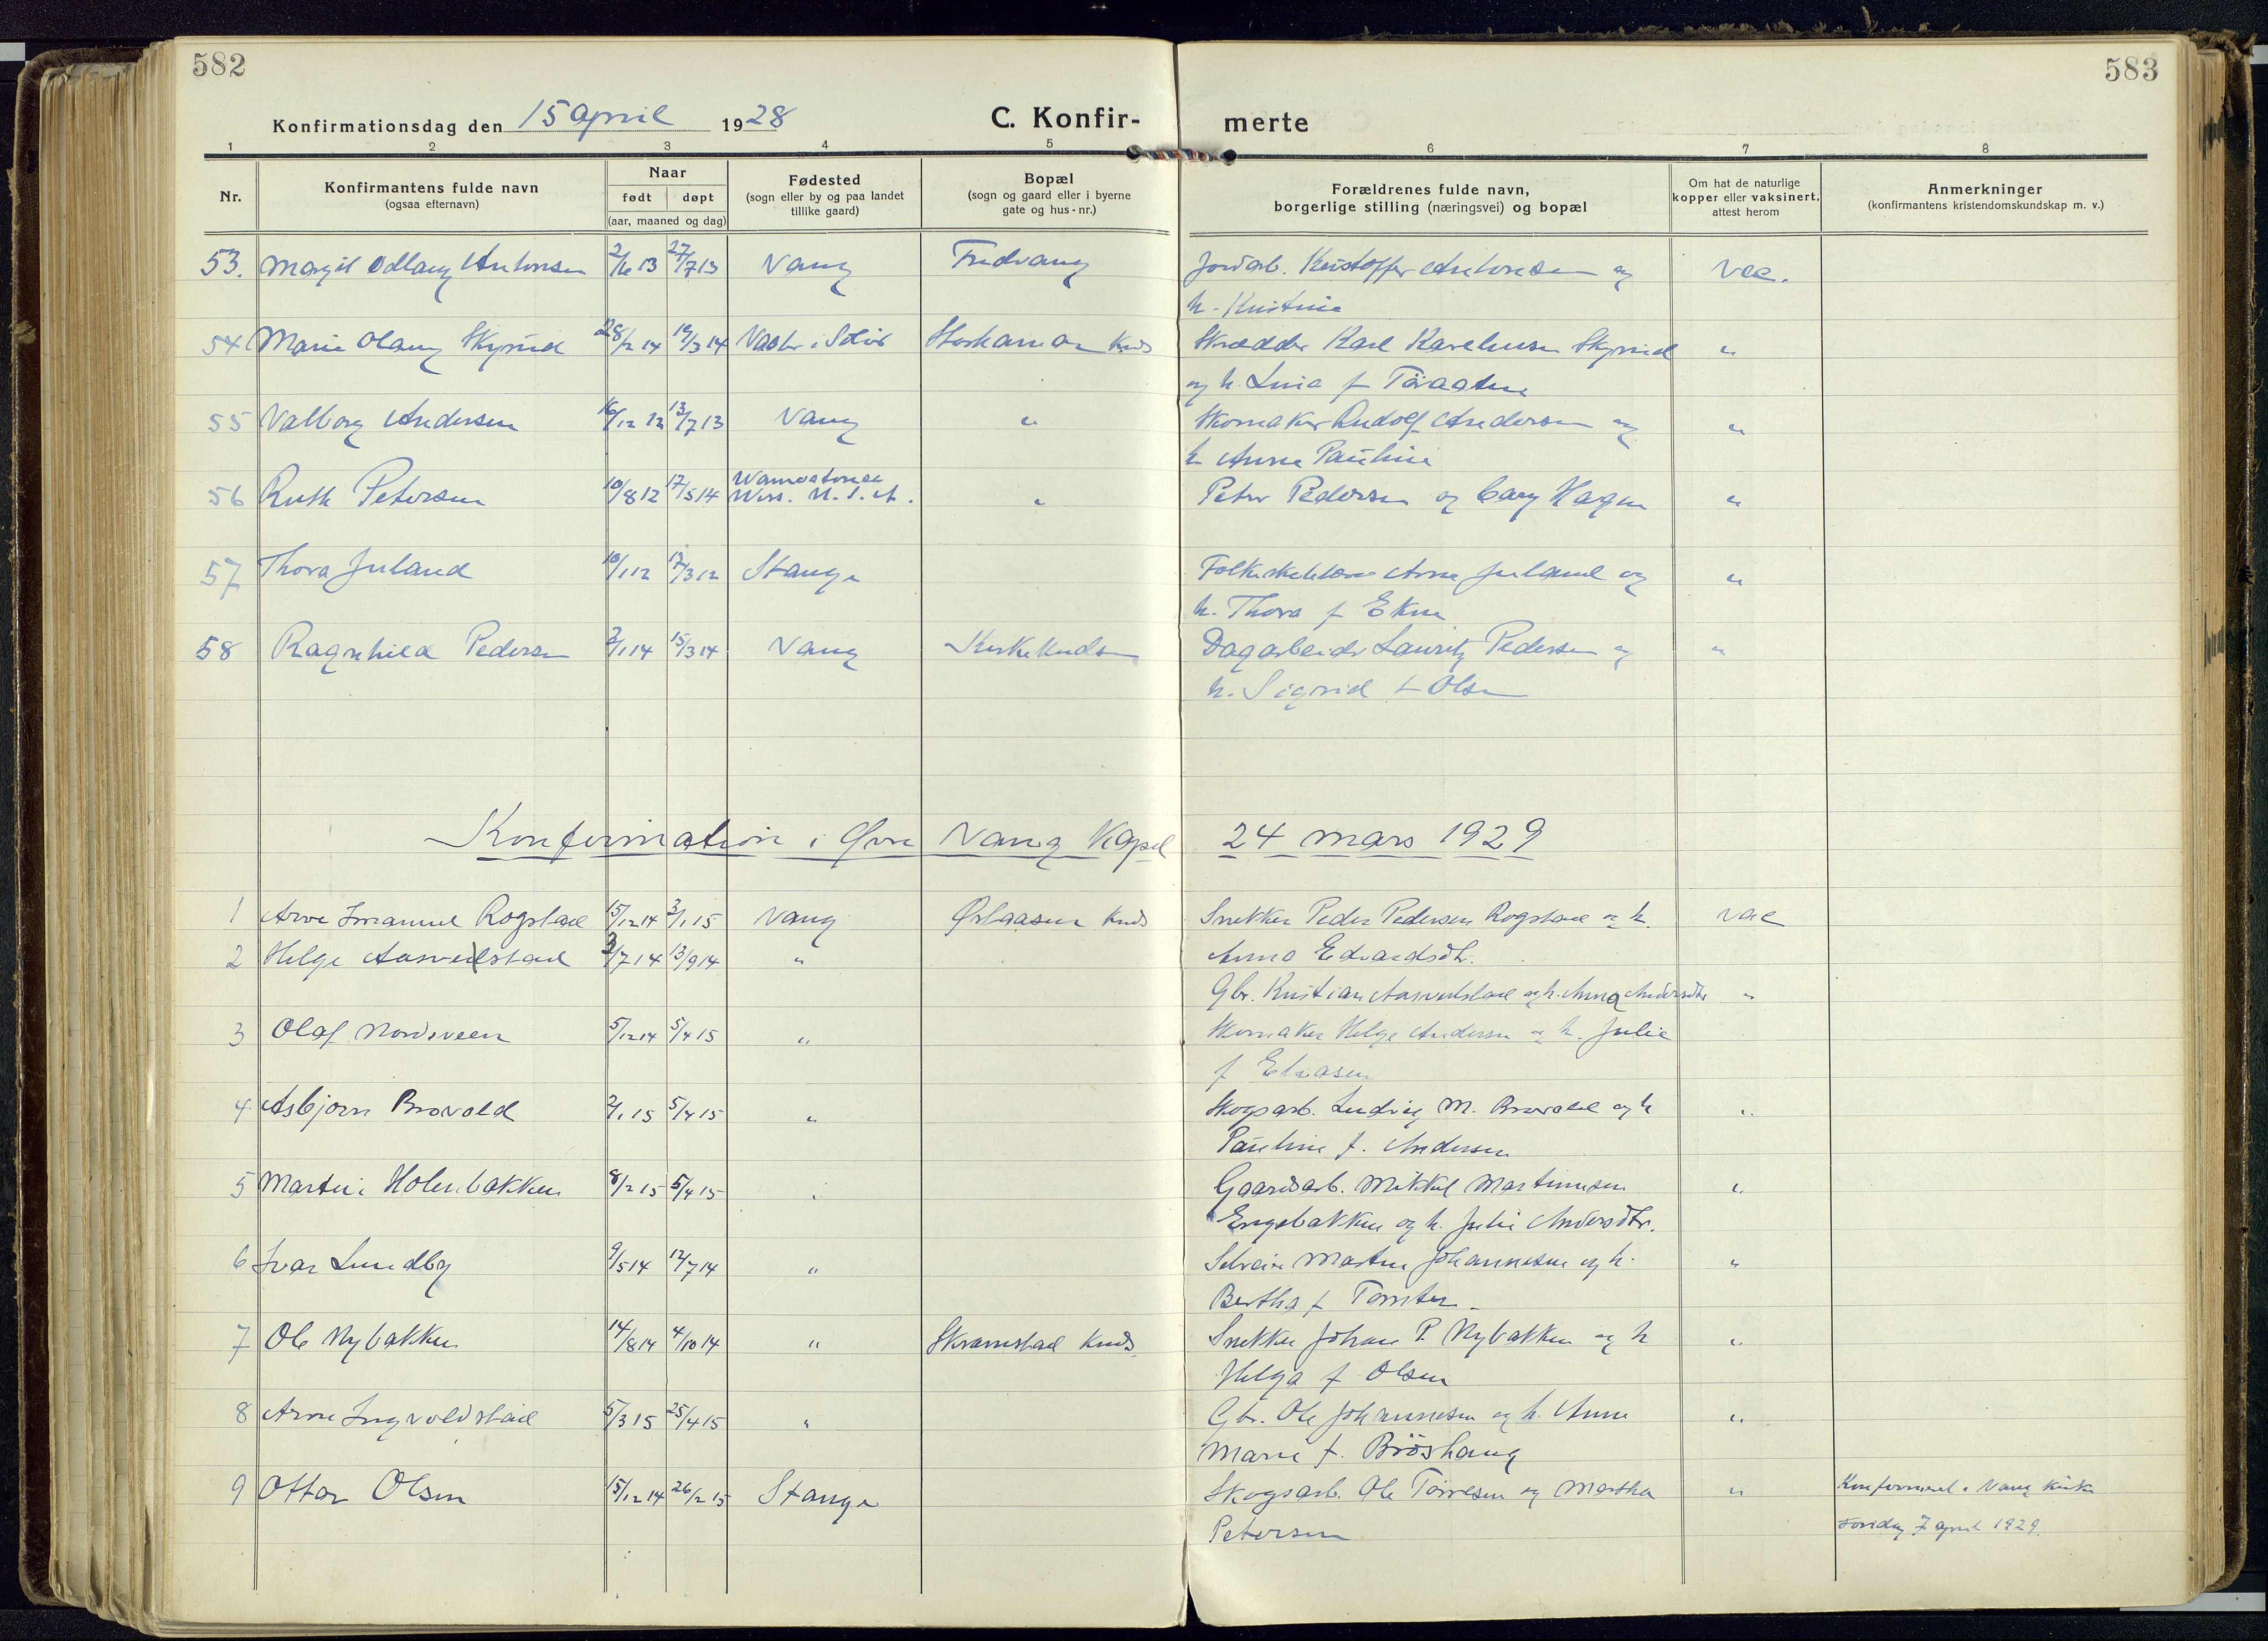 582
583
Konfirmationsdag den 15 April 1928
C. Konfir-
merte
1 2 3 4 5 6 7 8
Nr.
Konfirmantens fulde navn
(ogsaa efternavn)
Naar
født døpt
(aar, maaned og dag)
Fødested
(sogn eller by og paa landet
tillike gaard)
Bopæl
(sogn og gaard eller i byerne
gate og hus-nr.)
Forældrenes fulde navn,
borgerlige stilling (næringsvei) og bopæl
Om hat de naturlige
kopper eller vaksinert,
attest herom
Anmerkninger
(konfirmantens kristendomskundskap m. v.)
53. Margit Odlaug Antonsen 2/6 13 27/7 13 Vang Fredvang Jordarb. Kristoffer Antonsen og Vac.
h. Kristine
54 Marie Olaug Skyrud 28/2 14 19/3 14 Vaaler i Solør Storhamar Kreds Skrædder Karl Kareliusen Skyrud "
og h. Lina f
55 Valborg Andersen 16/12 12 13/7 13 Vang " Skomaker Rudolf Andersen og "
h Anna Pauline
56 Ruth Petersen 10/8 12 17/5 14
Wiss. U.S.A. " Peter Pedersen og Hagen "
57 Thora Juland 10/1 12 17/3 12 Stange Arne Juland og "
h. Thora f Eken
58 Ragnhild Pedersen 2/1 14 15/3 14 Vang Kirkekredsen Dagarbeider Lauritz Pedersen og "
h. Sigrid f Olsen
Konfirmation i Øvre Vang Kapel 24 mars 1929
1 Arve Immanuel Rogstad 15/12 14 3/1 15 Vang Kreds Snekker Peder Pedersen Rogstad og h. vac
2 Helge Aasvedstad 3/7 14 13/9 14 " Anna Edvardsdtr.
Gbr. Kristian Aasvedstad og h. Anna Andersdtr "
3 Olaf Nordsveen 5/12 14 5/4 15 " Skomaker Helge Andersen og h. Julie
f Eliasen
4 Asbjørn Brovold 2/1 15 5/4 15 " Skogsarb. Ludvig M. Brovold og h "
Pauline f. Andersen
5 Martin Holenbakken 8/2 15 5/4 15 " Gaardsarb. Mikkel Martinusen "
Engebakken og h. Julie Andersdtr.
6 Ivar Lundby 9/5 14 12/7 14 " Selveier Martin Johannesen og h. "
Bertha f Tomter
7 Ole Nybakken 14/8 14 4/10 14 " Skramstad Kreds Snekker Johan P. Nybakken og h "
Helga f Olsen
8 Arne Ingvoldstad 5/3 15 25/4 15 " Gbr. Ole Johannesen og h. Anne "
Marie f. Bröshaug
9 Ottar Olsen 15/12 14 26/2 15 Stange Skogsarb. Ole og Martha " Konfirmeret i Vang kirke
Petersen 7 april 1929.